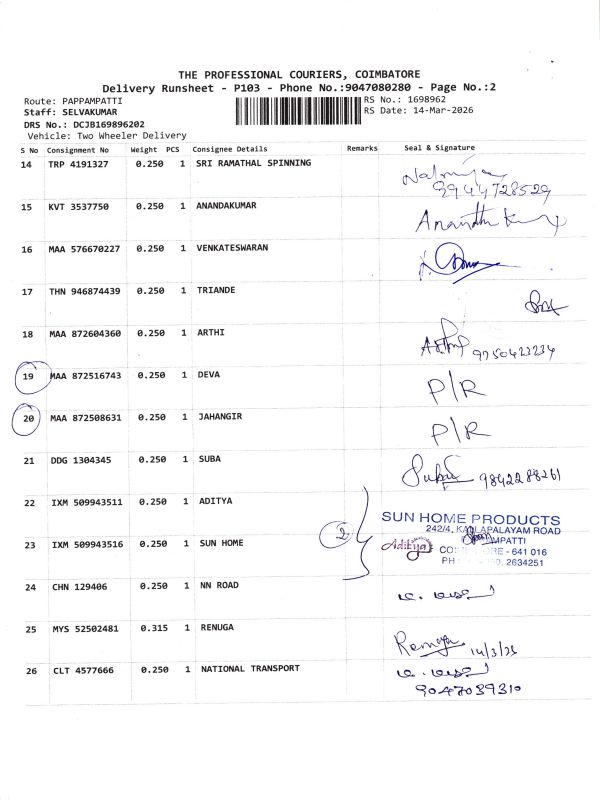 THE PROFESSIONAL COURIERS, COIMBATORE
Delivery Runsheet - P103 - Phone No.:9047080280 - Page No.:2
Route: PAPPAMPATTI
RS No.: 1698962
Staff: SELVAKUMAR
RS Date: 14-Mar-2026
DRS No.: DCJB169896202
Vehicle: Two Wheeler Delivery
S No Consignment No Weight PCS Consignee Details Remarks Seal & Signature
14 TRP 4191327 0.250 1 SRI RAMATHAL SPINNING
9944728529
15 KVT 3537750 0.250 1 ANANDAKUMAR
16 MAA 576670227 0.250 1 VENKATESWARAN
17 THN 946874439 0.250 1 TRIANDE
18 MAA 872604360 0.250 1 ARTHI
9750423234
19 MAA 872516743 0.250 1 DEVA P/R
20 MAA 872508631 0.250 1 JAHANGIR P/R
21 DDG 1304345 0.250 1 SUBA 9842288261
22 IXM 509943511 0.250 1 ADITYA
SUN HOME PRODUCTS
242/4, KALLAPALAYAM ROAD
2
23 IXM 509943516 0.250 1 SUN HOME Aditya
- 641 016
2634251
24 CHN 129406 0.250 1 NN ROAD
25 MYS 52502481 0.315 1 RENUGA Renuga
26 CLT 4577666 0.250 1 NATIONAL TRANSPORT
9047039310